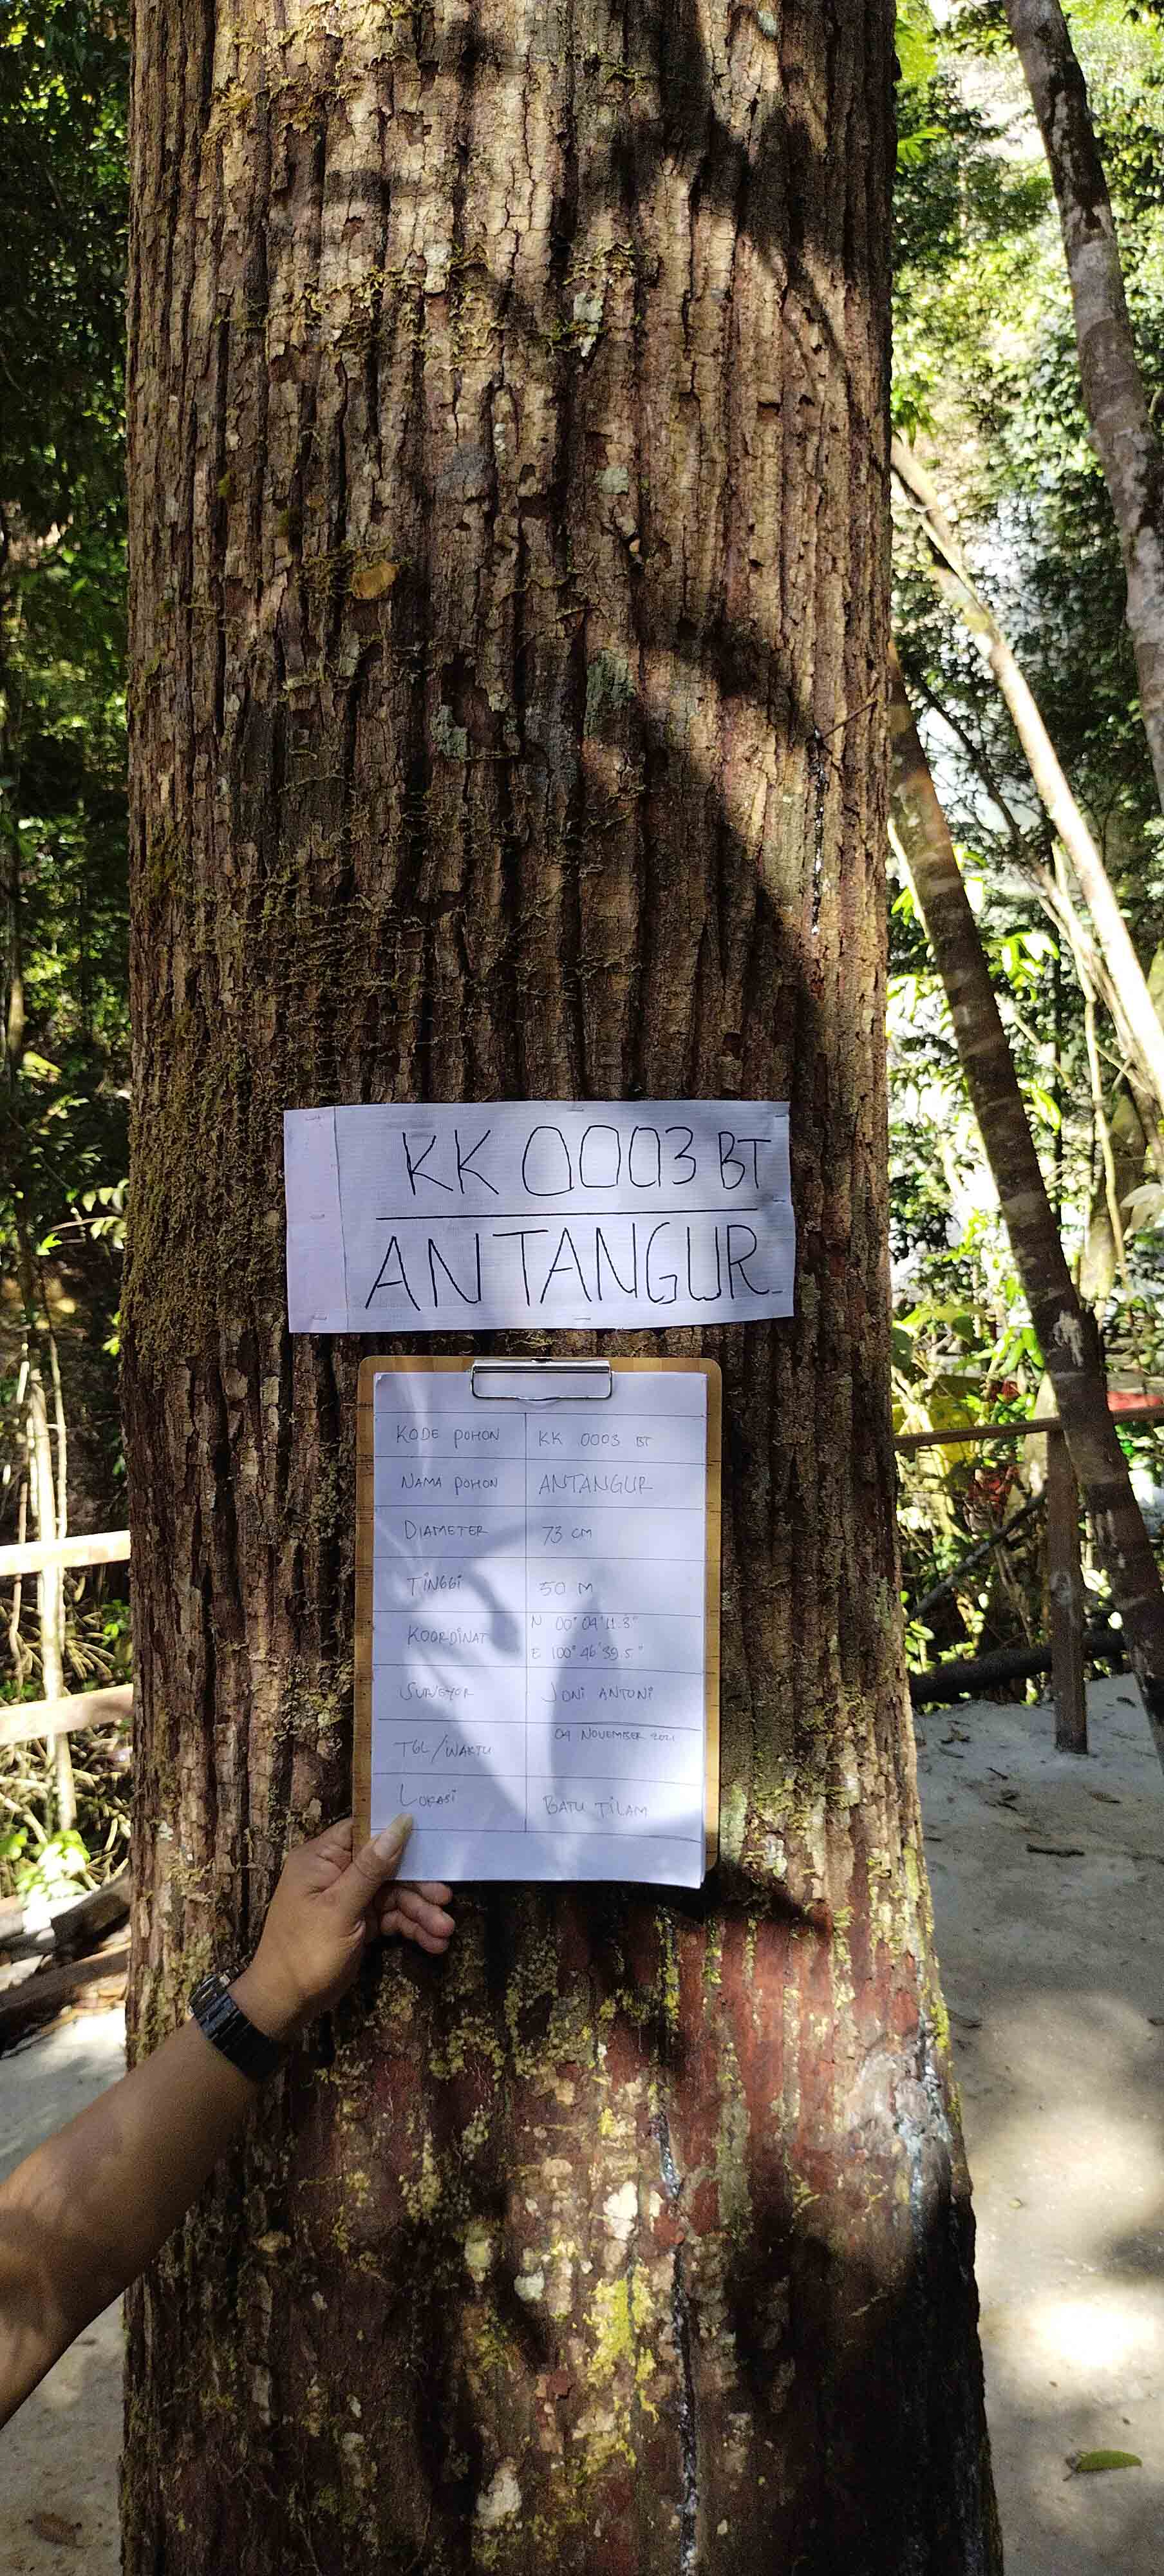 KK 0003 BT
ANTANGUR
KODE POHON KK 0003 BT
NAMA POHON ANTANGUR
DIAMETER 73 CM
TINGGI 50 M
KOORDINAT N 00° 04' 11.3"
E 100° 46' 39.5"
SURVEYOR JONI ANTONI
TGL/WAKTU 04 NOVEMBER 2021
LOKASI BATU TILAM